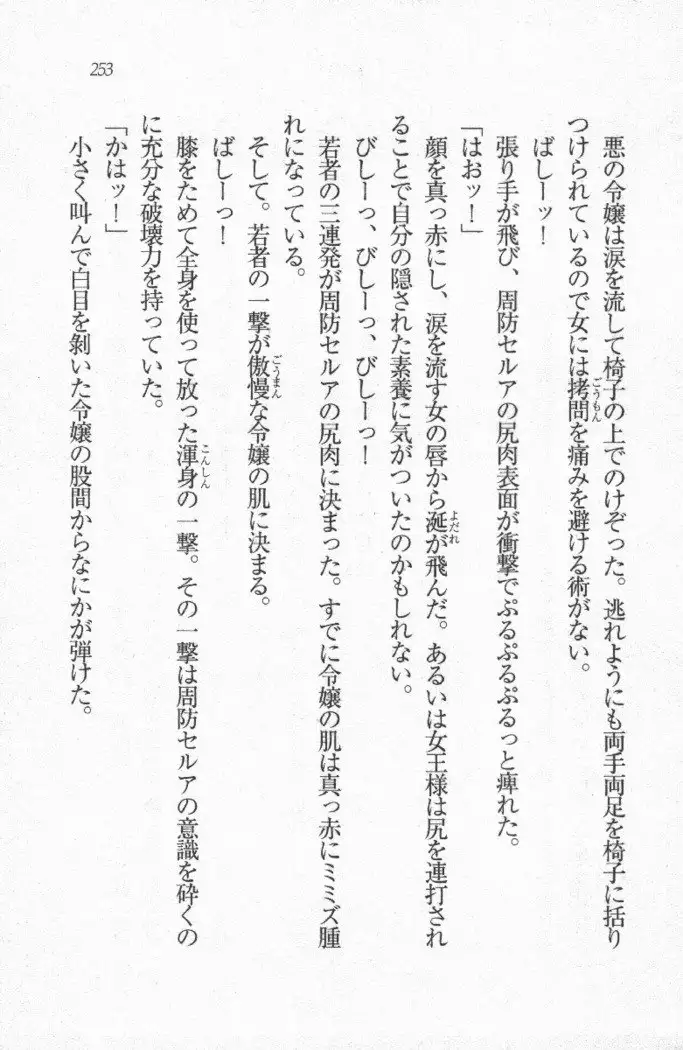 253
悪の令嬢は涙を流して椅子の上でのけぞった。逃れようにも両手両足を椅子に括り
つけられているので女には拷問を痛みを避ける術がない。
ばしーッ！
張り手が飛び、周防セルアの尻肉表面が衝撃でぷるぷるぷるっと痺れた。
「はおッ！」
顔を真っ赤にし、涙を流す女の唇から涎が飛んだ。あるいは女王様は尻を連打され
ることで自分の隠された素養に気がついたのかもしれない。
びしーっ、びしーっ、びしーっ！
若者の三連発が周防セルアの尻肉に決まった。すでに令嬢の肌は真っ赤にミミズ腫
れになっている。
そして。若者の一撃が傲慢な令嬢の肌に決まる。
ばしーっ！
膝をためて全身を使って放った渾身の一撃。その一撃は周防セルアの意識を砕くの
に充分な破壊力を持っていた。
「かはッ！」
小さく叫んで白目を剝いた令嬢の股間からなにかが弾けた。